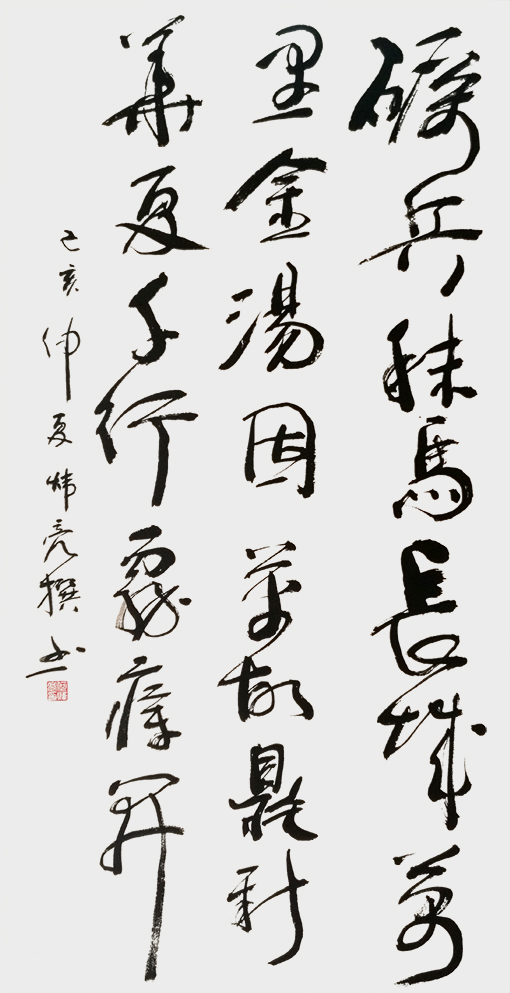 礪兵秣馬長城萬
里金湯固革故鼎新
華夏千行霧瘴開
己亥仲夏煒亮撰书